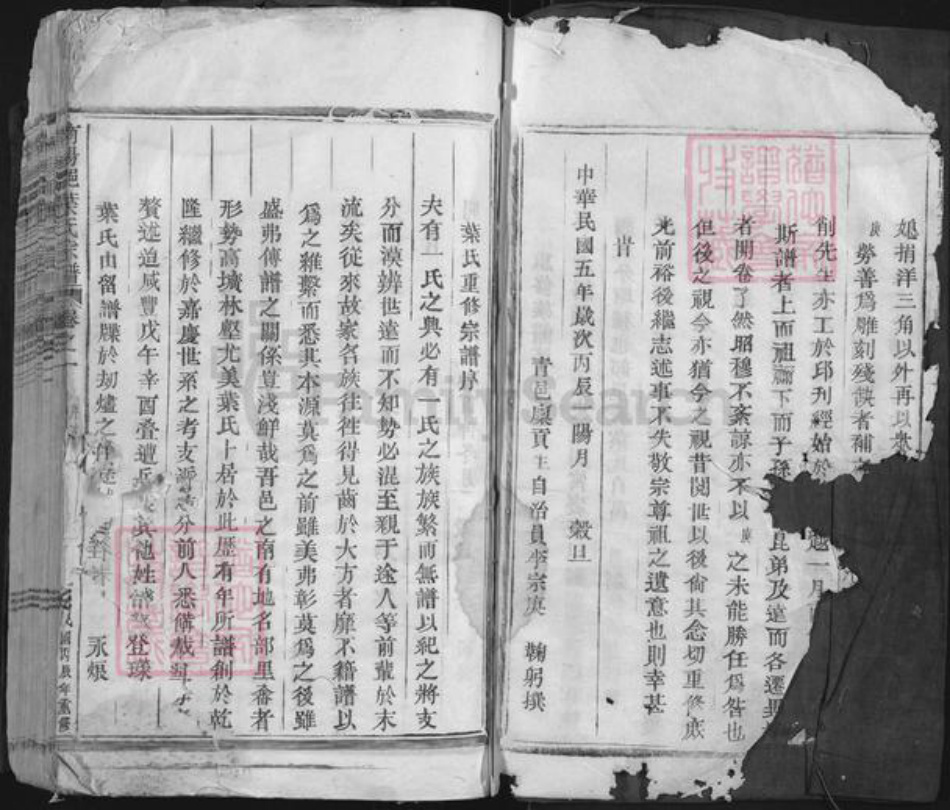 娓捐洋三角以外再以衆
庚 勞善爲雕刻殘缺者補
削先生亦工於邱刋經始於 越一月
斯譜者上而祖禰下而子孫 昆弟及遠而各遷
者開卷了然昭穆不紊諒亦不以庚之未能勝任爲咎也
但後之視今亦猶今之視昔閱世以後尙其念切重修庶
光前裕後繼志述事不失敬宗尊祖之遺意也則幸甚
旹
中華民國五年歲次丙辰 陽月 榖旦
青邑廩貢生自治員李宗庚 鞠躬撰
葉氏重修宗譜序
夫有一氏之典必有一氏之族族繁而無譜以紀之將支
分而漠辨世遠而不知勢必混至親于途人等前輩於末
流矣從來故家名族往往得見齒於大方者靡不籍譜以
爲之維繫而悉其本源莫爲之前雖美弗彰莫爲之後雖
盛弗傳譜之關係豈淺鮮哉吾邑之南有地名部里畲者
形勢高壙林壑尤美葉氏卜居於此歷有年所譜創於乾
隆繼修於嘉慶世系之考支源 分前人悉備載
贅述道咸豐戊午辛酉叠遭兵 其他姓譜 登瑛
葉氏由留譜牒於刼爐之 永烺
葉氏宗譜 卷之一
民國丙辰年重修
FamilySearch